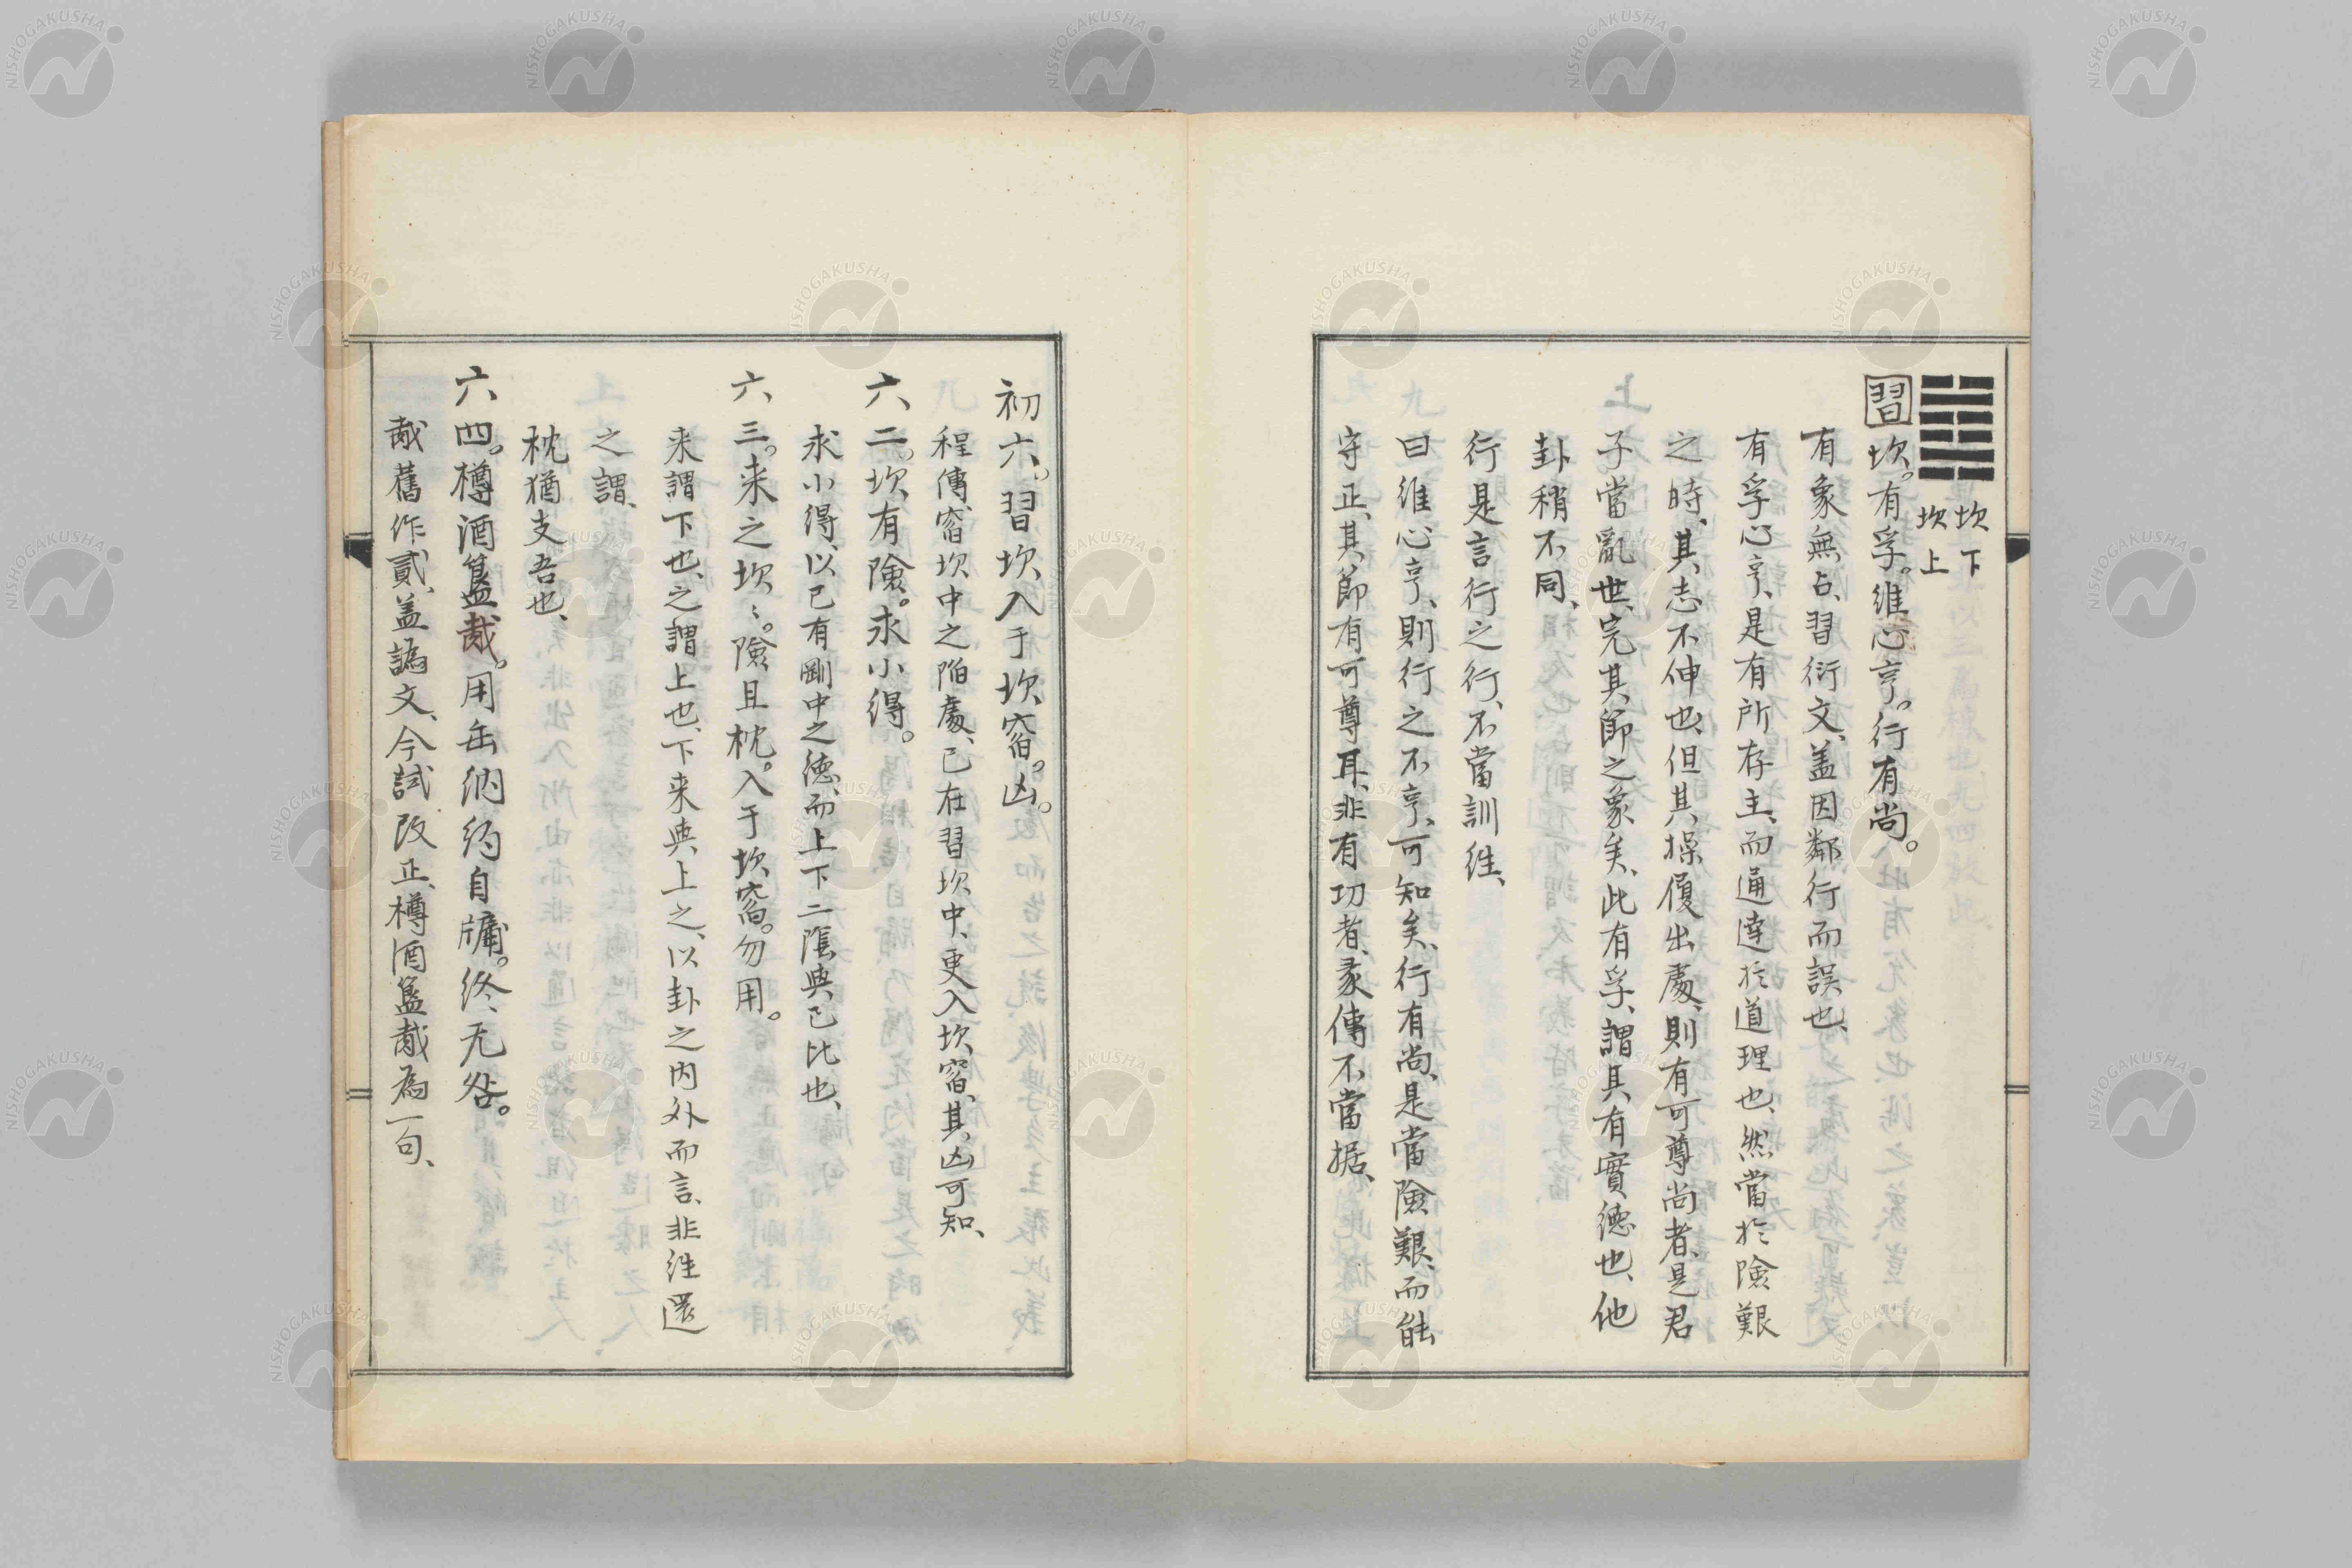 坎下
坎上
習坎。有孚。維心亨。行有尚。
有象無占、習衍文、盖因鄰行而誤也、
有孚心亨、是有所存主、而通達於道理也、然當於險艱
之時、其志不伸也、但其操履出處、則有可尊尚者、是君
子當亂世、完其節之象矣、此有孚、謂其有實德也、他
卦稍不同、
行是言行之行、不當訓往、
曰維心亨、則行之不亨、可知矣、行有尚、是當險艱、而能
守正、其節有可尊耳、非有功者、彖傳不當据、
初六。習坎、入于坎窞。凶。
程傳、窞坎中之陷處、已在習坎中、更入坎窞、其凶可知、
六二。坎有險。求小得。
求小得、以己有剛中之德、而上下二陰與己比也、
六三。来之坎〻。險且枕。入于坎窞。勿用。
来謂下也、之謂上也、下来與上之、以卦之内外而言、非往還
之謂、
枕猶支吾也、
六四。樽酒簋胾。用缶納約自牖。終无咎。
胾舊作貳、盖譌文、今試改正、樽酒簋胾為一句、
NISHOGAKUSHA